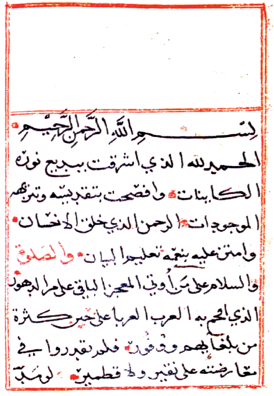 بِسْمِ اللَّهِ الرَّحْمَنِ الرَّحِيْمِ
الحمد لله الذي اشرقت ببديع نوره
الكاينات وافصحت بتقديسه وتنزيهه
الموجودات الرحمن الذي خلق الانسان
وامتن عليه بنعمة تعليم البيان والصلوة
والسلام على من أوتي المعجز الباقي على مر الدهور
الذي افحم به العرب العربا على حين كثرة
من بلغايهم ووفور فلم يقدروا في
معارضته على نقير ولا قطمير